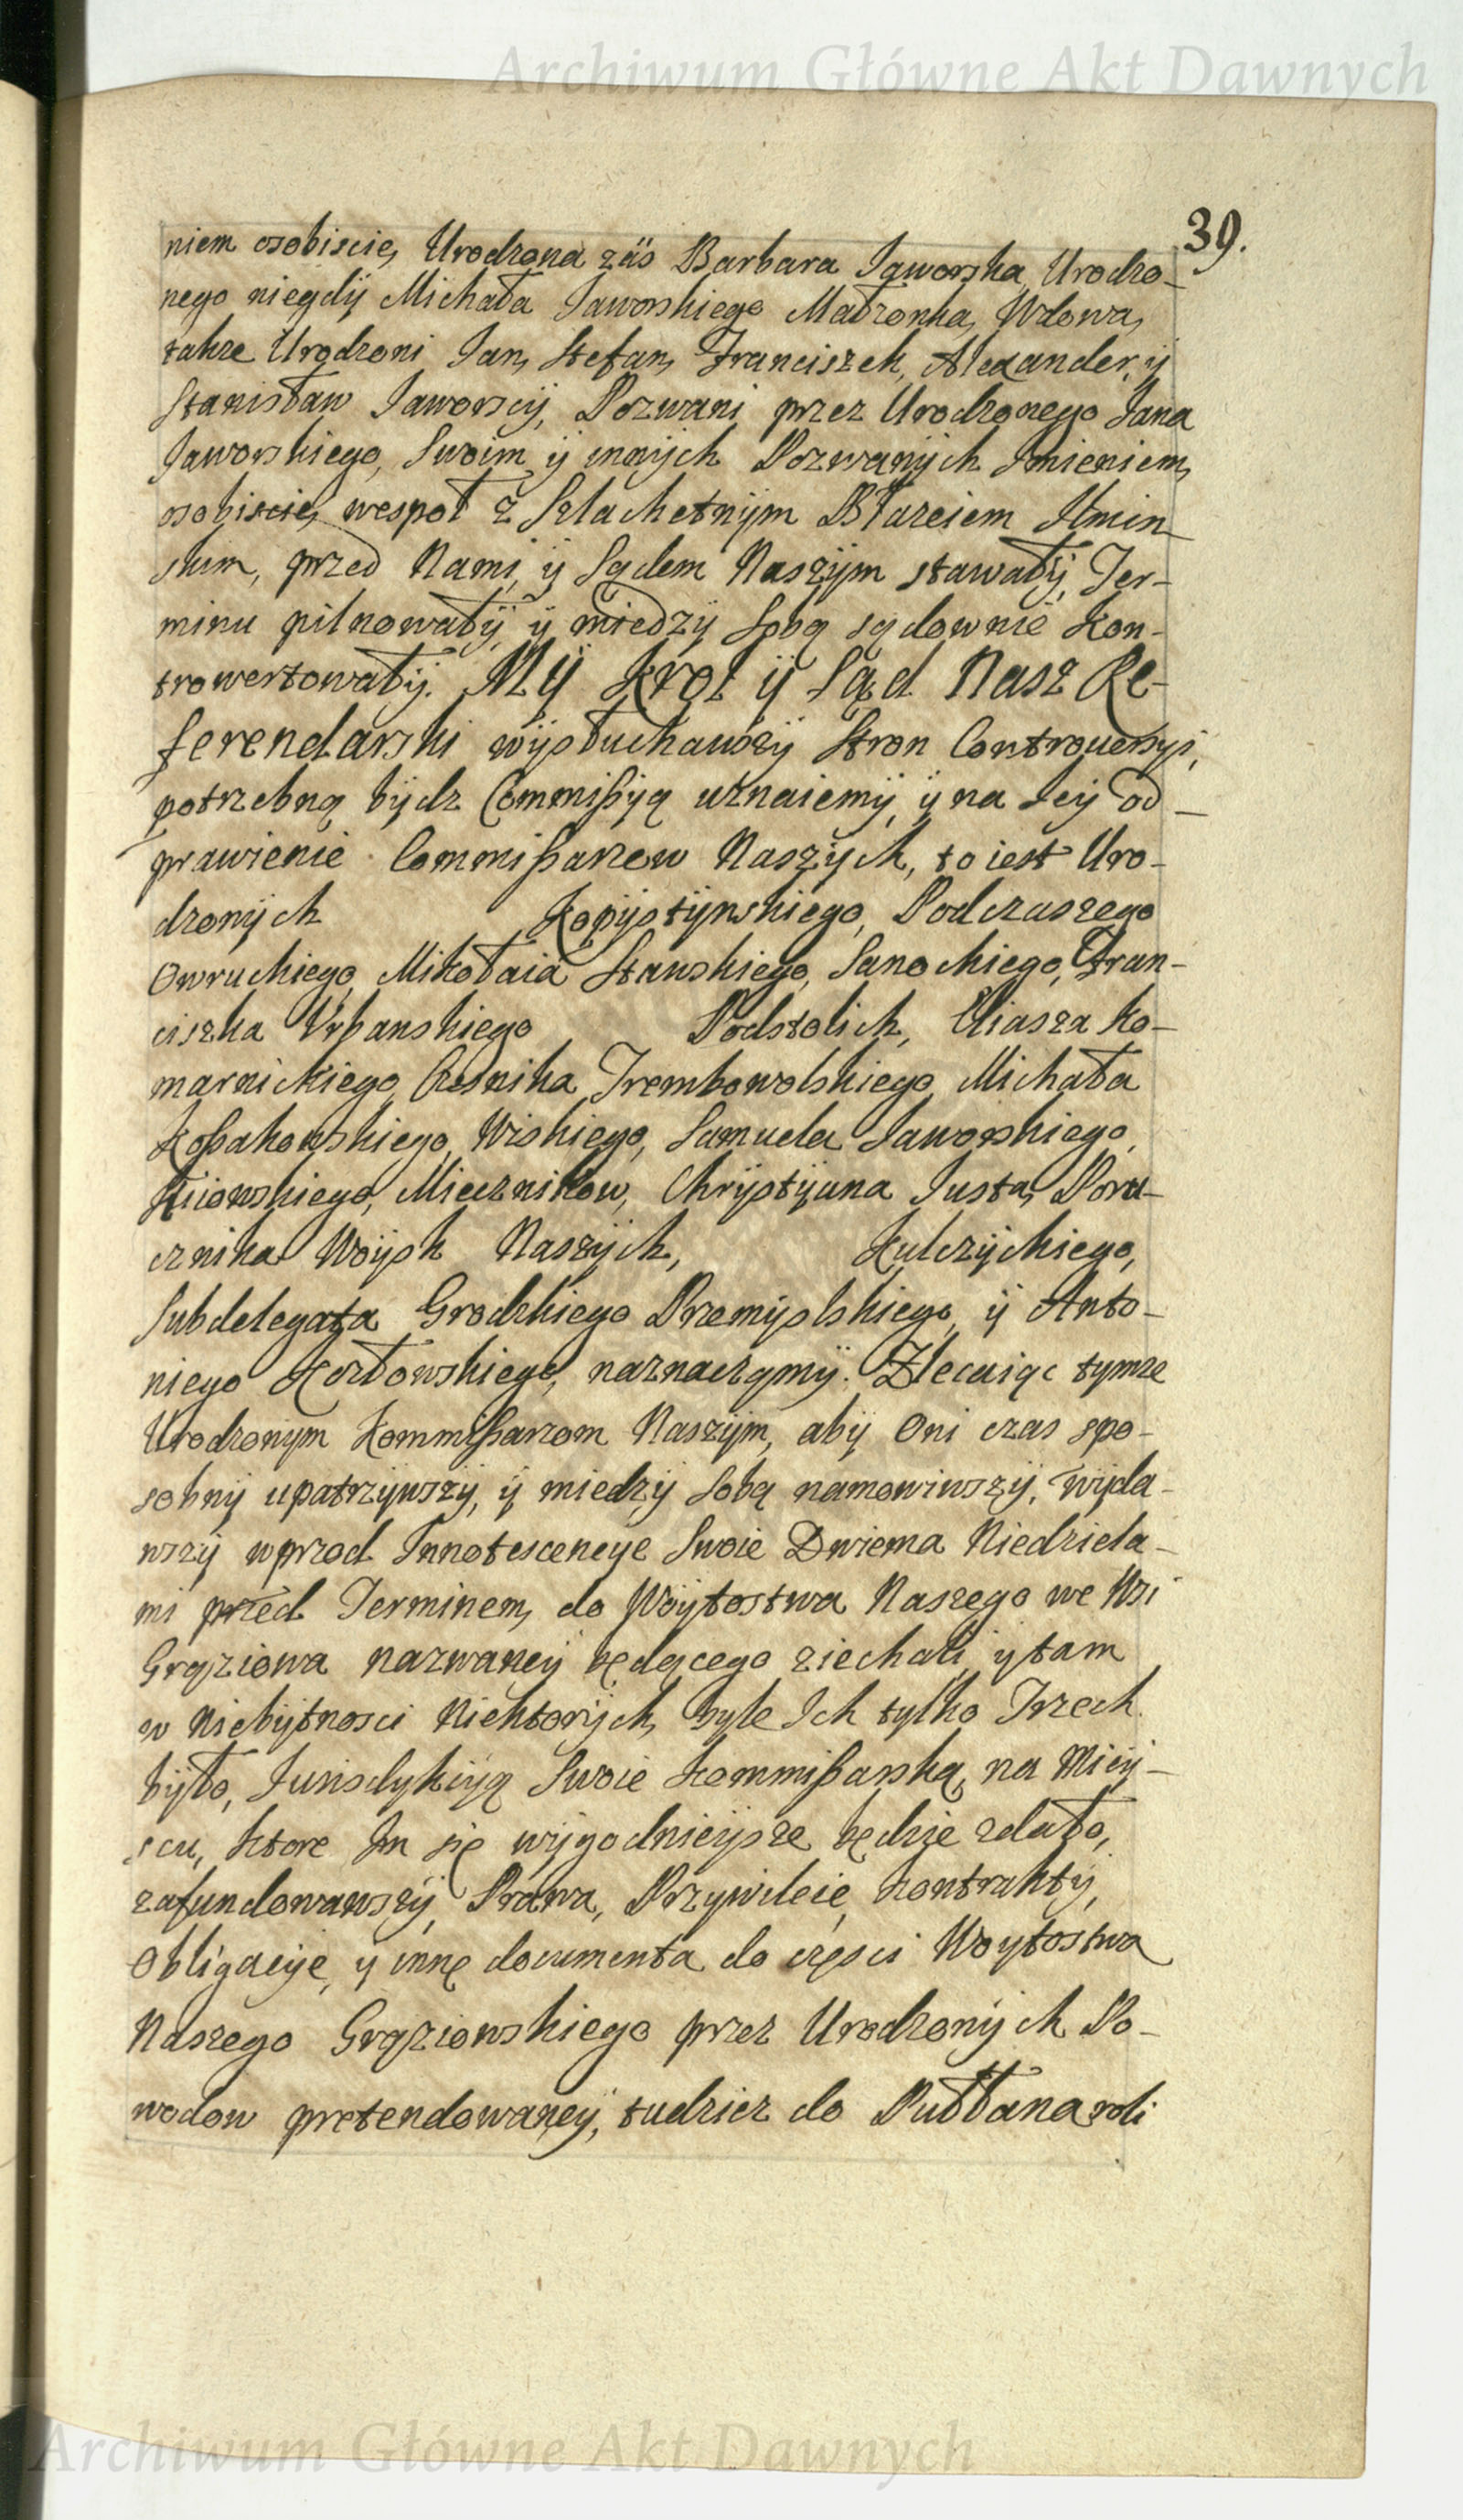 Archiwum Główne Akt Dawnych
39.
niem osobiscie, Urodzona zás Barbara Jaworska, Urodzo-
nego niegdÿ Michała Jaworskiego Małżonka, Wdowa,
takze Urodzeni Jan, Stefan, Franciszek, Alexander, ÿ
Stanisław Jaworscÿ, Pozwani przez Urodzonego Jana
Jaworskiego, Swoim ÿ innÿch Pozwanÿch Imieniem,
osobiscie, wespoł z Szlachetnÿm Błazeiem Ilmin
skim, przed Nami, ÿ Sądem Naszÿm stawałÿ, Ter-
minu pilnowałÿ, ÿ miedzÿ Sobą sądownie kon-
trowertowałÿ. MŸ Krol ÿ Sąd Nasz Re-
ferendarski wÿsłuchawszÿ Stron Controuersyi,
potrzebną bÿdz Commißÿą uznaiemÿ, ÿ na Jeÿ od-
prawienie Commißarzow Naszÿch, to iest Uro-
dzonÿch Kopÿstÿnskiego, Podczaszego
Owruckiego, Mikołaia Stawskiego, Sanockiego, Fran-
ciszka Vrbanskiego Podstolich, Eliasza Ko-
marnickiego, Czesnika Trembowolskiego, Michała
Koßakowskiego, Wiskiego, Samuela Jaworskiego,
Kiiowskiego, Miecznikow, Chrÿstÿana Justa, Poru-
cznika Woÿsk Naszÿch, Kulczÿckiego,
Subdelegata Grodzkiego Przemÿslskiego, ÿ Anto-
niego Kozłowskiego, naznaczamÿ. Zlecaiąc tymze
Urodzonym Kommißarzom Naszÿm, abÿ Oni czas spo-
sobnÿ upatrzÿwszÿ, ÿ miedzÿ Sobą namowiwszÿ, wÿda-
wszÿ wprzod Innotescencye Swoie Dwiema Niedziela-
mi przed Terminem, do Woÿtostwa Naszego we Wsi
Grąziowa nazwaneÿ będącego ziechali, ÿ tam
w Niebÿtnosci Niektorÿch, byle Ich tylko Trzech
bÿło, Jurisdykcÿą Swoie Kommißarską, na Mieÿ-
scu, ktore Im się wÿgodnieÿsze będzie zdało,
zafundowawszÿ, Prawa, Przywileie, kontraktÿ,
Obligacÿe, y inne documenta do częsci Woytostwa
Naszego Grąziowskiego przez Urodzonÿch Po-
wodow pretendowaneÿ, tudziez do Pułłana roli
Archiwum Główne Akt Dawnych